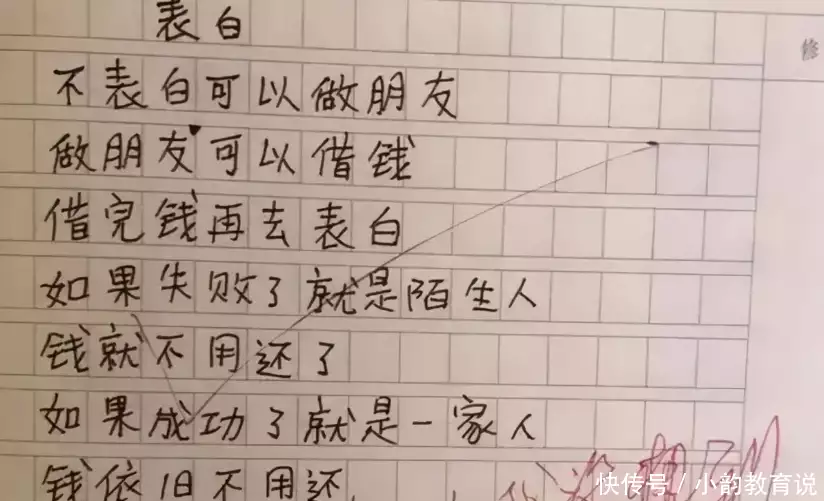 表白
修
不表白可以做朋友
做朋友可以借钱
借完钱再去表白
如果失败了就是陌生人
钱就不用还了
如果成功了就是一家人
钱依旧不用还
快传号/小韵教育说